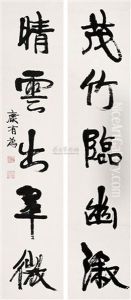 茂竹臨幽澂
晴雲出翠微
康有為